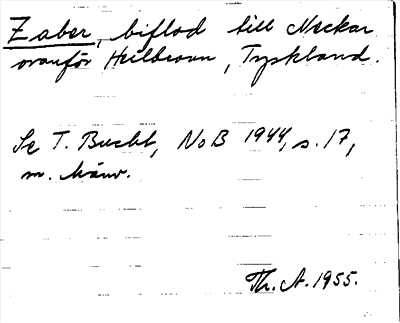 Zaber, biflod till Neckar
ovanför Heilbronn, Tyskland.
Se T. Bucht, NoB 1944, s. 17,
m. hänv.
Th. A. 1955.